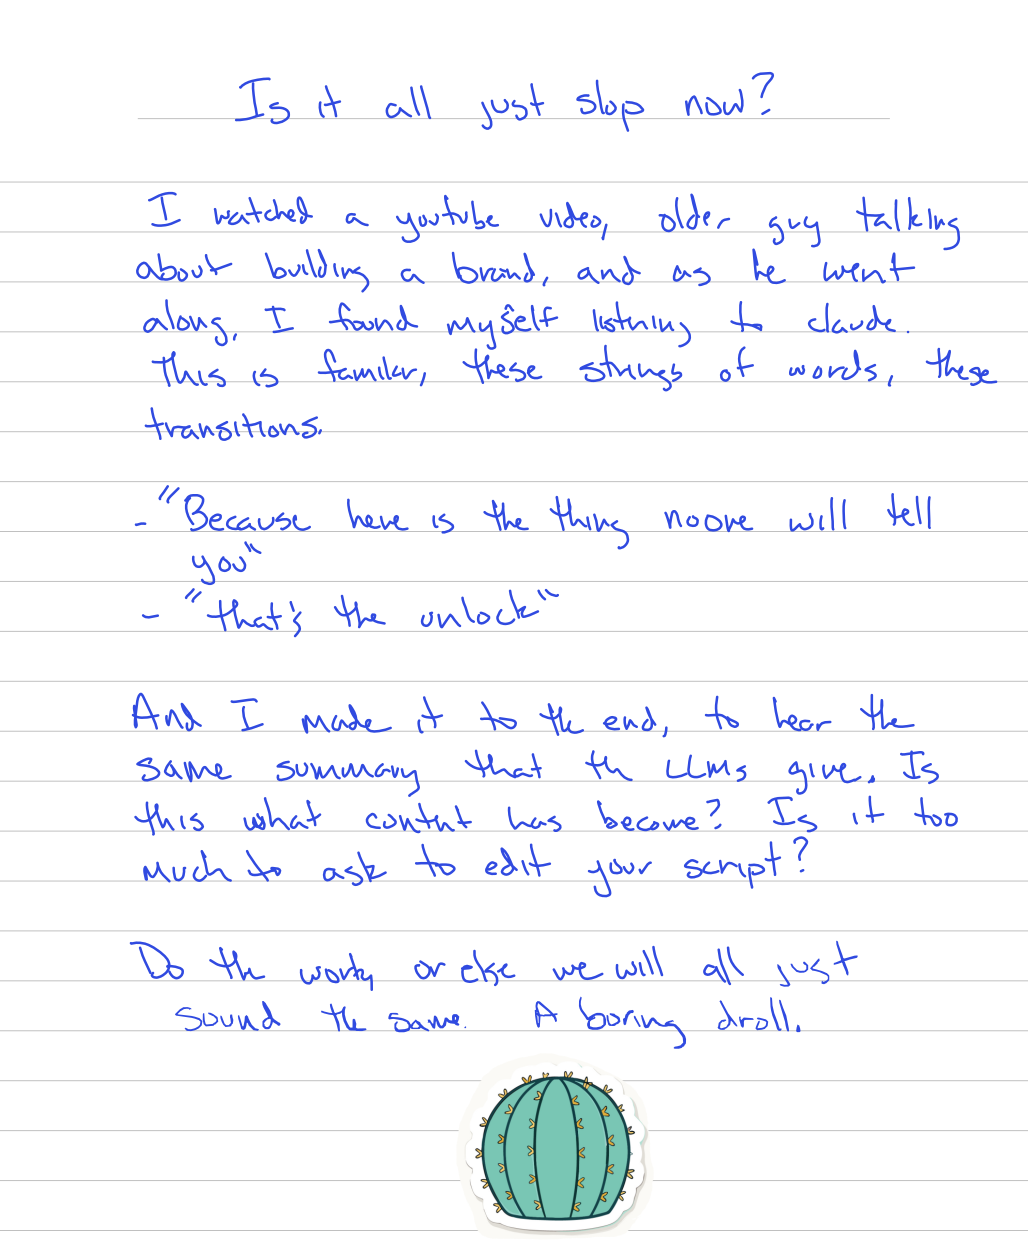 Is it all just slop now?
I watched a youtube video, older guy talking
about building a brand, and as he went
along, I found myself listning to claude.
This is familar, these strings of words, these
transitions.
- "Because here is the thing noone will tell
you"
- "that's the unlock"
And I made it to the end, to hear the
same summary that th LLMs give. Is
this what contnt has become? Is it too
much to ask to edit your script?
Do the work, or else we will all just
sound the same. A boring droll.